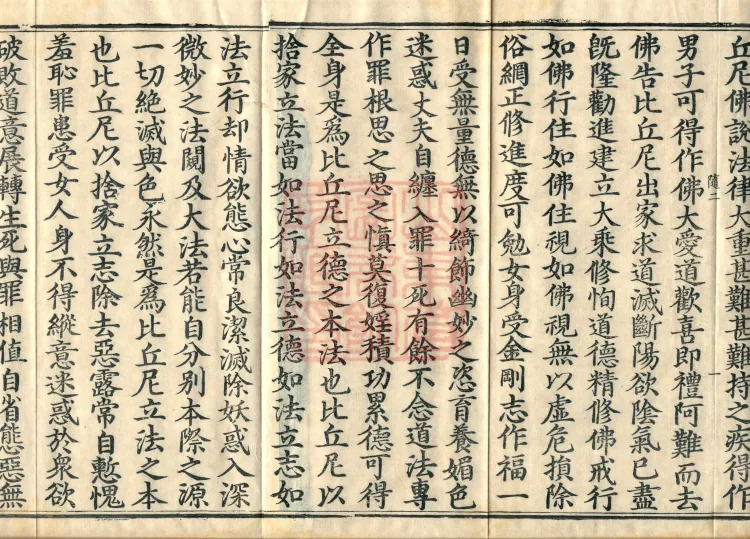 丘尼佛說法律大重甚難甚難持之疾得作
男子可得作佛大愛道歡喜即禮阿難而去
佛告比丘尼出家求道滅斷陽欲陰氣已盡
既隆勸進建立大乘修恂道德精修佛戒行
如佛行住如佛住視如佛視無以虛危損除
俗網正修進度可勉女身受金剛志作福一
日受無量德無以綺飾幽妙之恣育養媚色
迷惑丈夫自纏入罪十死有餘不念道法專
作罪根思之思之慎莫復婬積功累德可得
全身是為比丘尼立德之本法也比丘尼以
捨家立法當如法行如法立德如法立志如
法立行却情欲態心常良潔滅除妖惑入深
微妙之法闚及大法若能自分別本際之源
一切絕滅與色永然是為比丘尼立法之本
也比丘尼以捨家立志除去惡露常自慙愧
羞恥罪患受女人身不得縱意迷惑於衆欲
破敗道意展轉生死與罪相值自省態惡無
隨二